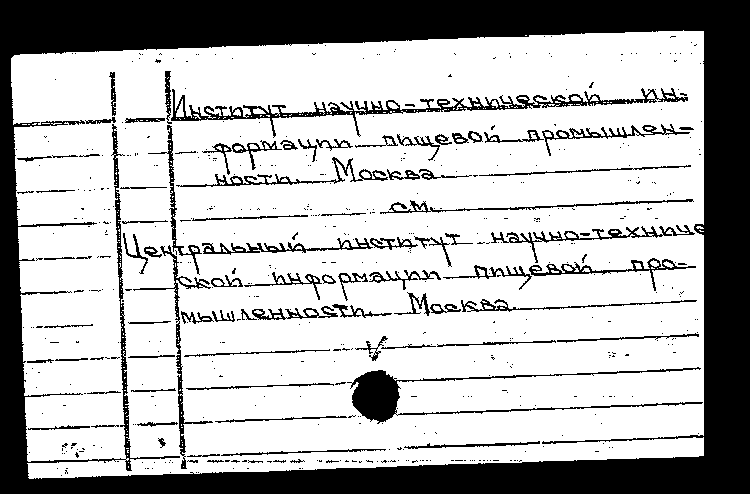 Институт научно-технической ин-
формации пищевой промышлен-
ности. Москва.
см.
Центральный институт научно-техниче
ской информации пищевой про-
мышленности. Москва.